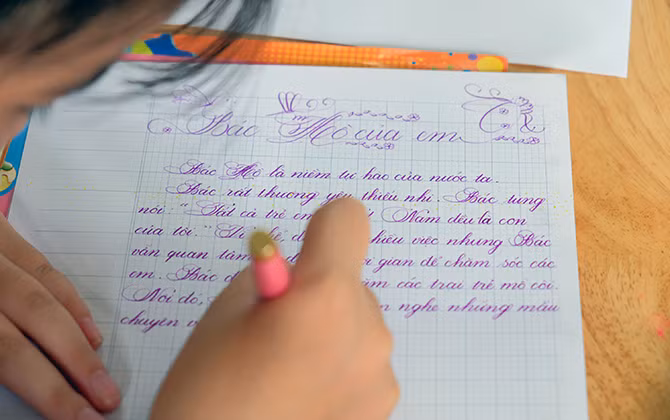 Bác Hồ của em
Bác Hồ là niềm tự hào của nước ta.
Bác rất thương yêu thiếu nhi. Bác từng
nói: "Tất cả trẻ em Nam đều là con
của tôi." nhiều việc nhưng Bác
vẫn quan tâm gian để chăm sóc các
em. Bác các trại trẻ mồ côi.
Nơi đó, nghe những mẩu
chuyện